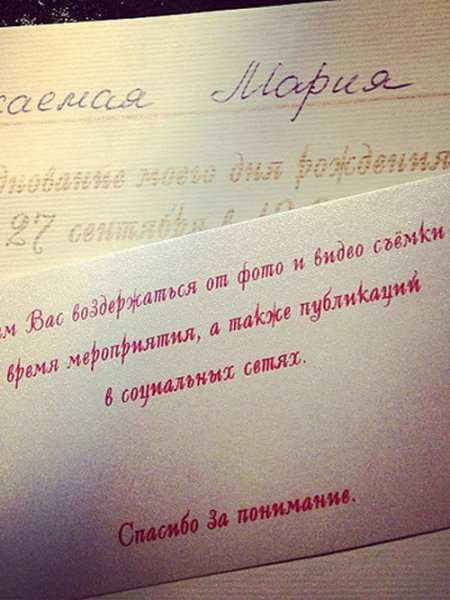 жаемая Мария
днование моего дня рождения
27 сентября в
м Вас воздержаться от фото и видео съёмки
время мероприятия, а также публикаций
в социальных сетях.
Спасибо за понимание.